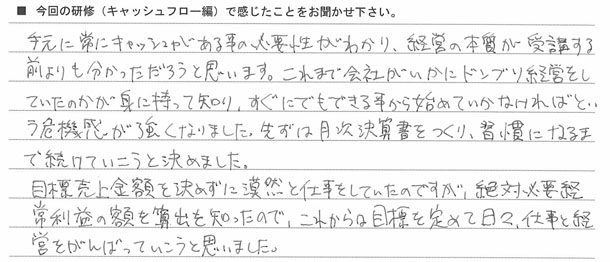 ■ 今回の研修（キャッシュフロー編）で感じたことをお聞かせ下さい。
手元に常にキャッシュがある事の必要性がわかり、経営の本質が受講する
前よりも分かっただろうと思います。これまで会社がいかにドンブリ経営をし
ていたのかが身に持って知り、すぐにでもできる事から始めていかなければとい
う危機感が強くなりました。先ずは月次決算書をつくり、習慣になるま
で続けていこうと決めました。
目標売上金額を決めずに漠然と仕事をしていたのですが、絶対必要経
常利益の額を算出を知ったので、これからは目標を定めて日々、仕事と経
営をがんばっていこうと思いました。